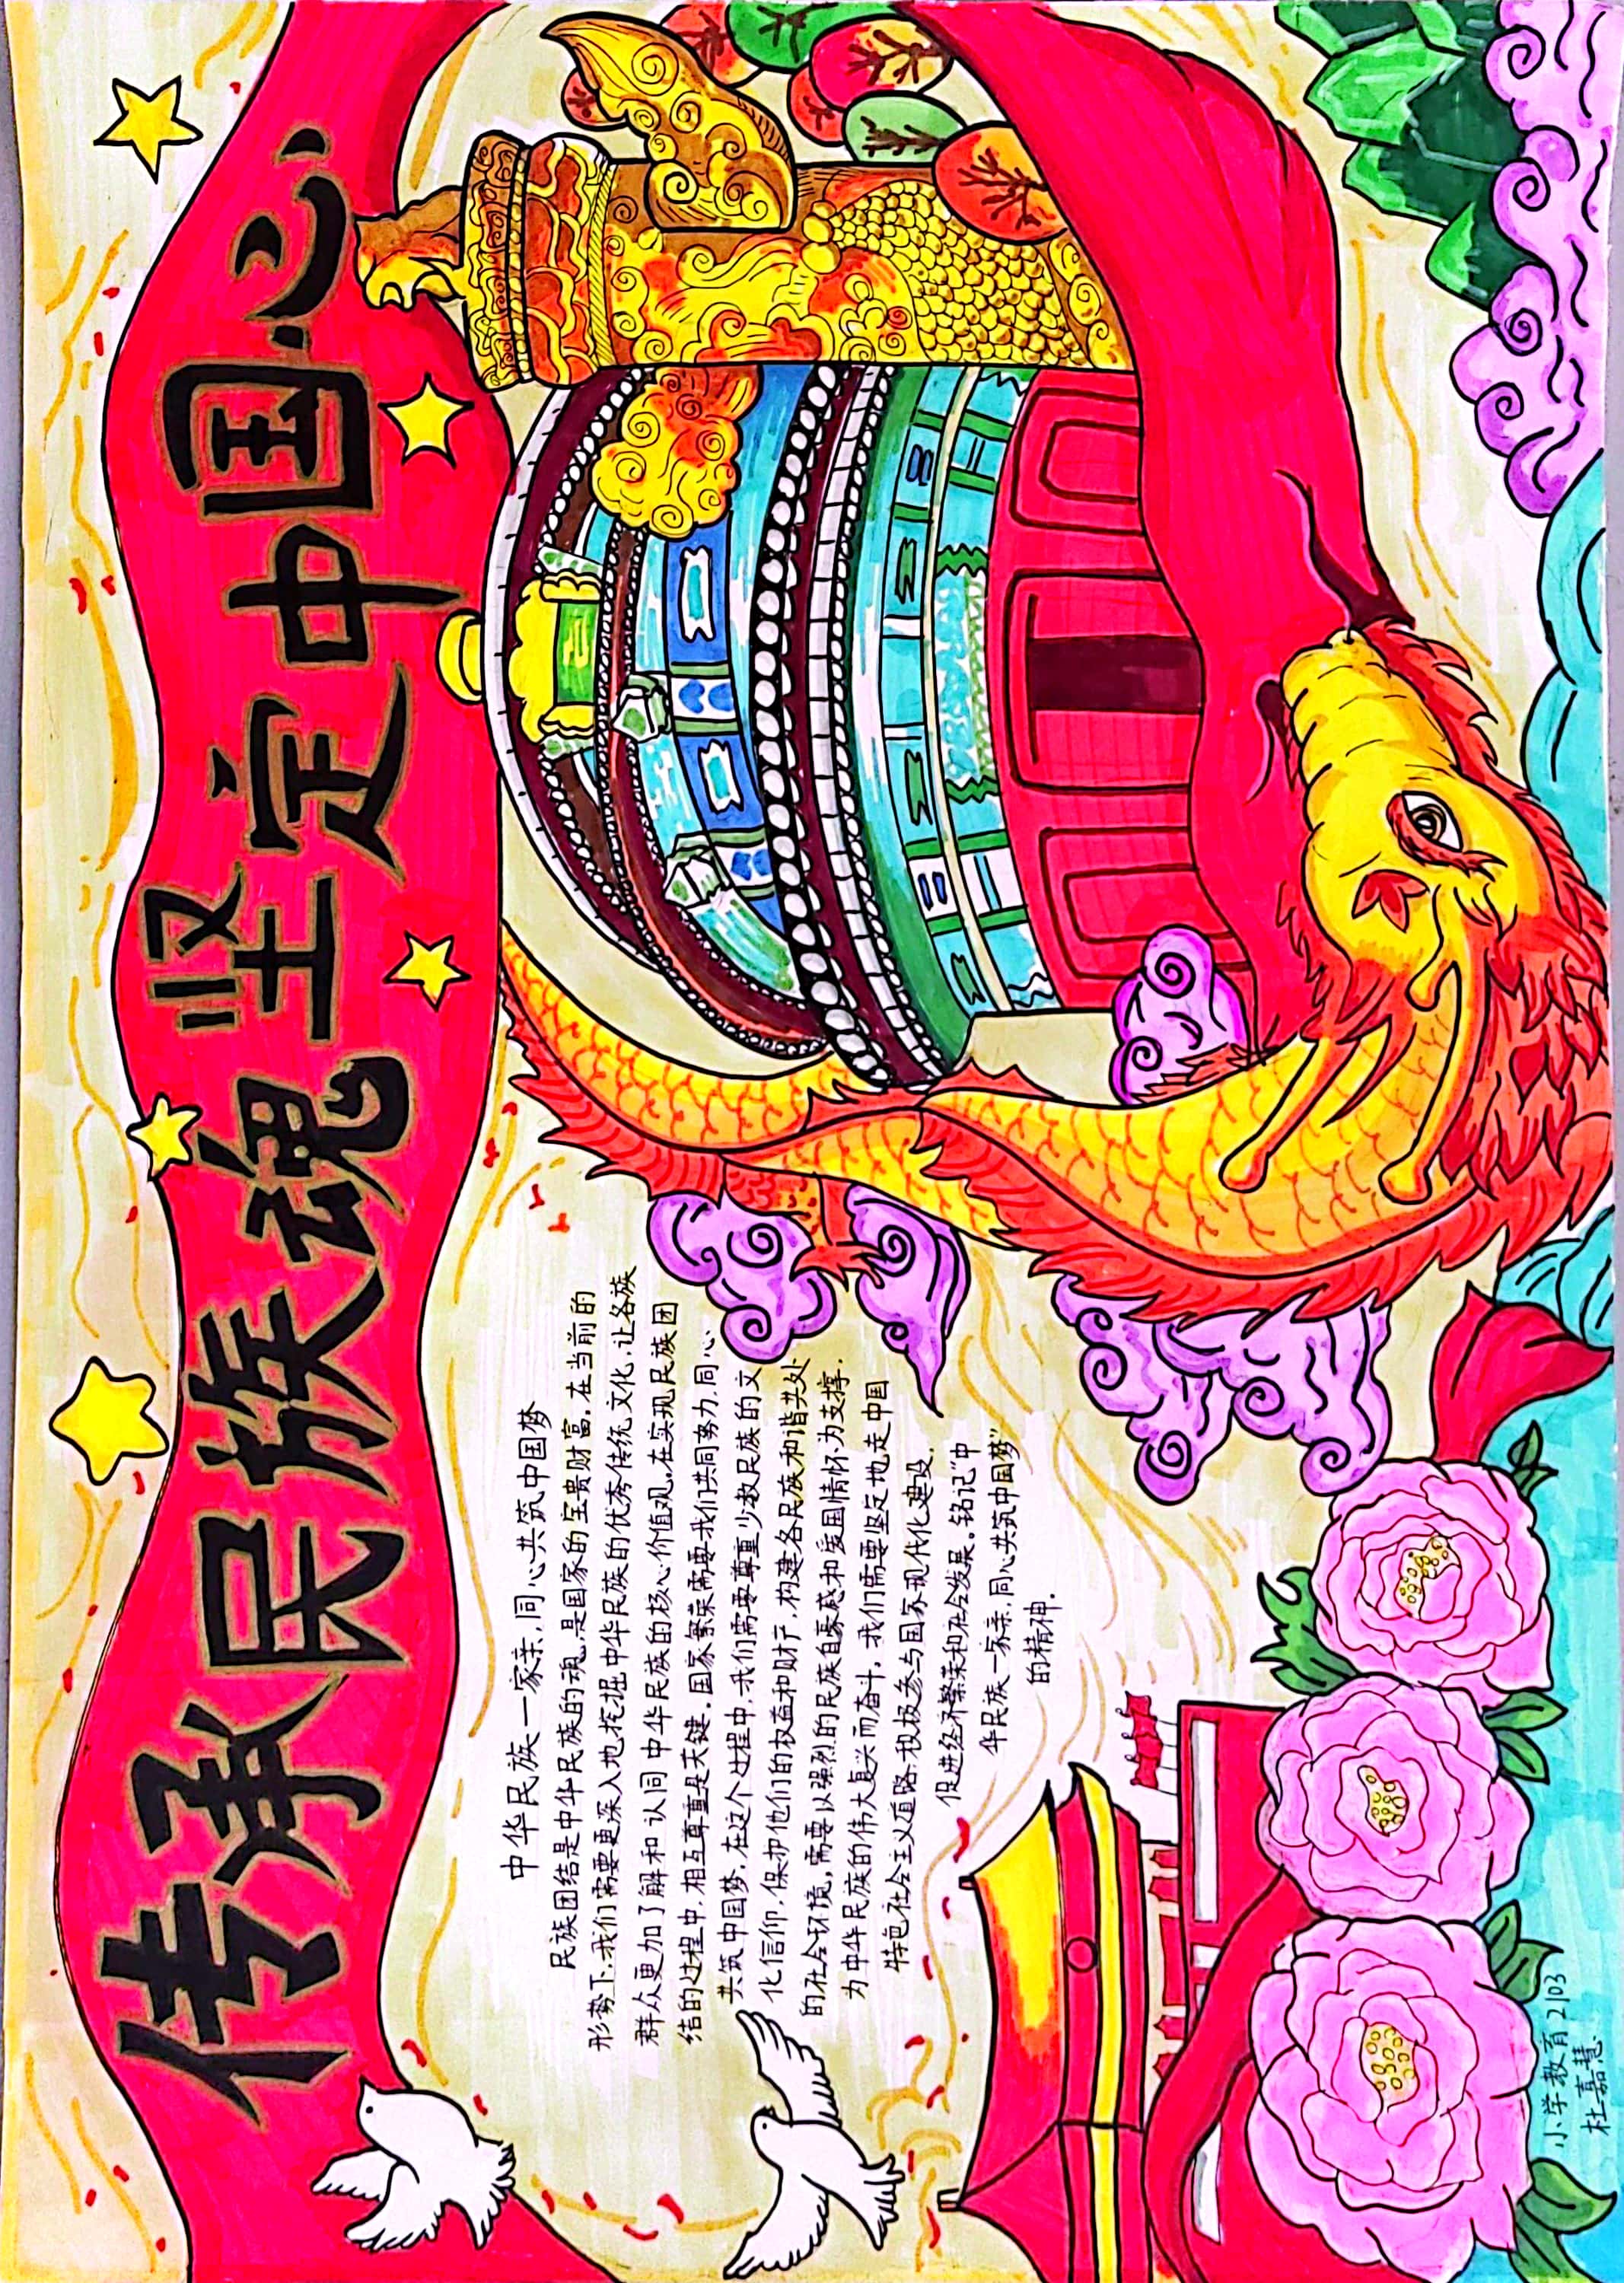 传承民族魂 坚定中国心
中华民族一家亲,同心共筑中国梦
民族团结是中华民族的魂,是国家的宝贵财富。在当前的
形势下,我们需要更深入地挖掘中华民族的优秀传统文化,让各族
群众更加了解和认同中华民族的核心价值观。在实现民族团
结的过程中,相互尊重是关键。国家繁荣需要我们共同努力,同心
共筑中国梦。在这个过程中,我们需要尊重少数民族的文
化信仰,保护他们的权益和财产,构建各民族和谐共处
的社会环境,需要以强烈的民族自豪感和爱国情怀为支撑.
为中华民族的伟大复兴而奋斗,我们需要坚定地走中国
特色社会主义道路,积极参与国家现代化建设.
促进经济繁荣和社会发展。铭记"中
华民族一家亲,同心共筑中国梦"
的精神.
小学教育2103
杜嘉慧